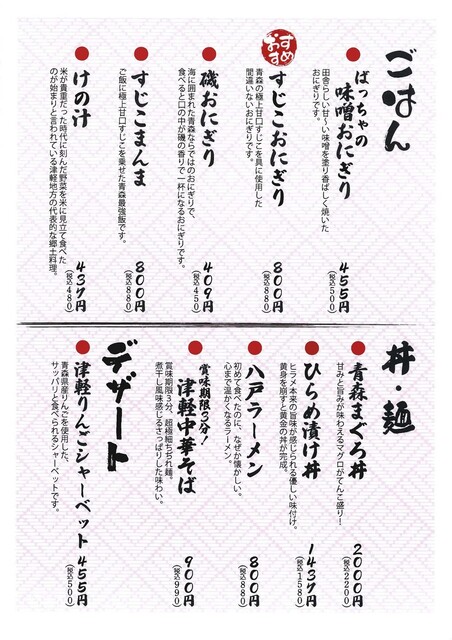 ごはん
ばっちゃの
味噌おにぎり
田舎らしい甘〜い味噌を塗り香ばしく焼いた
おにぎりです。
455円
(税込500)
おすすめ
すじこおにぎり
青森の極上甘口すじこを具に使用した
間違いないおにぎりです。
800円
(税込880)
磯おにぎり
海に囲まれた青森ならではのおにぎりで、
食べると口の中が磯の香りで一杯になるおにぎりです。
409円
(税込450)
すじこまんま
ご飯に極上甘口すじこを乗せた青森最強飯です。
800円
(税込880)
けの汁
米が貴重だった時代に刻んだ野菜を米に見立て食べた
のが始まりと言われている津軽地方の代表的な郷土料理。
437円
(税込480)
丼・麺
青森まぐろ丼
甘みと旨みが味わえるマグロがてんこ盛り!
2000円
(税込2200)
ひらめ漬け丼
ヒラメ本来の旨味が感じられる優しい味付け。
黄身を崩すと黄金の丼が完成。
1437円
(税込1580)
八戸ラーメン
初めて食べたのに、なぜか懐かしい、
心まで温かくなるラーメン。
800円
(税込880)
賞味期限3分!
津軽中華そば
賞味期限3分、超極細ちぢれ麺。
煮干し風味感じるさっぱりした味わい。
900円
(税込990)
デザート
津軽りんごシャーベット
青森県産りんごを使用した、
サッパリと食べられるシャーベットです。
455円
(税込500)